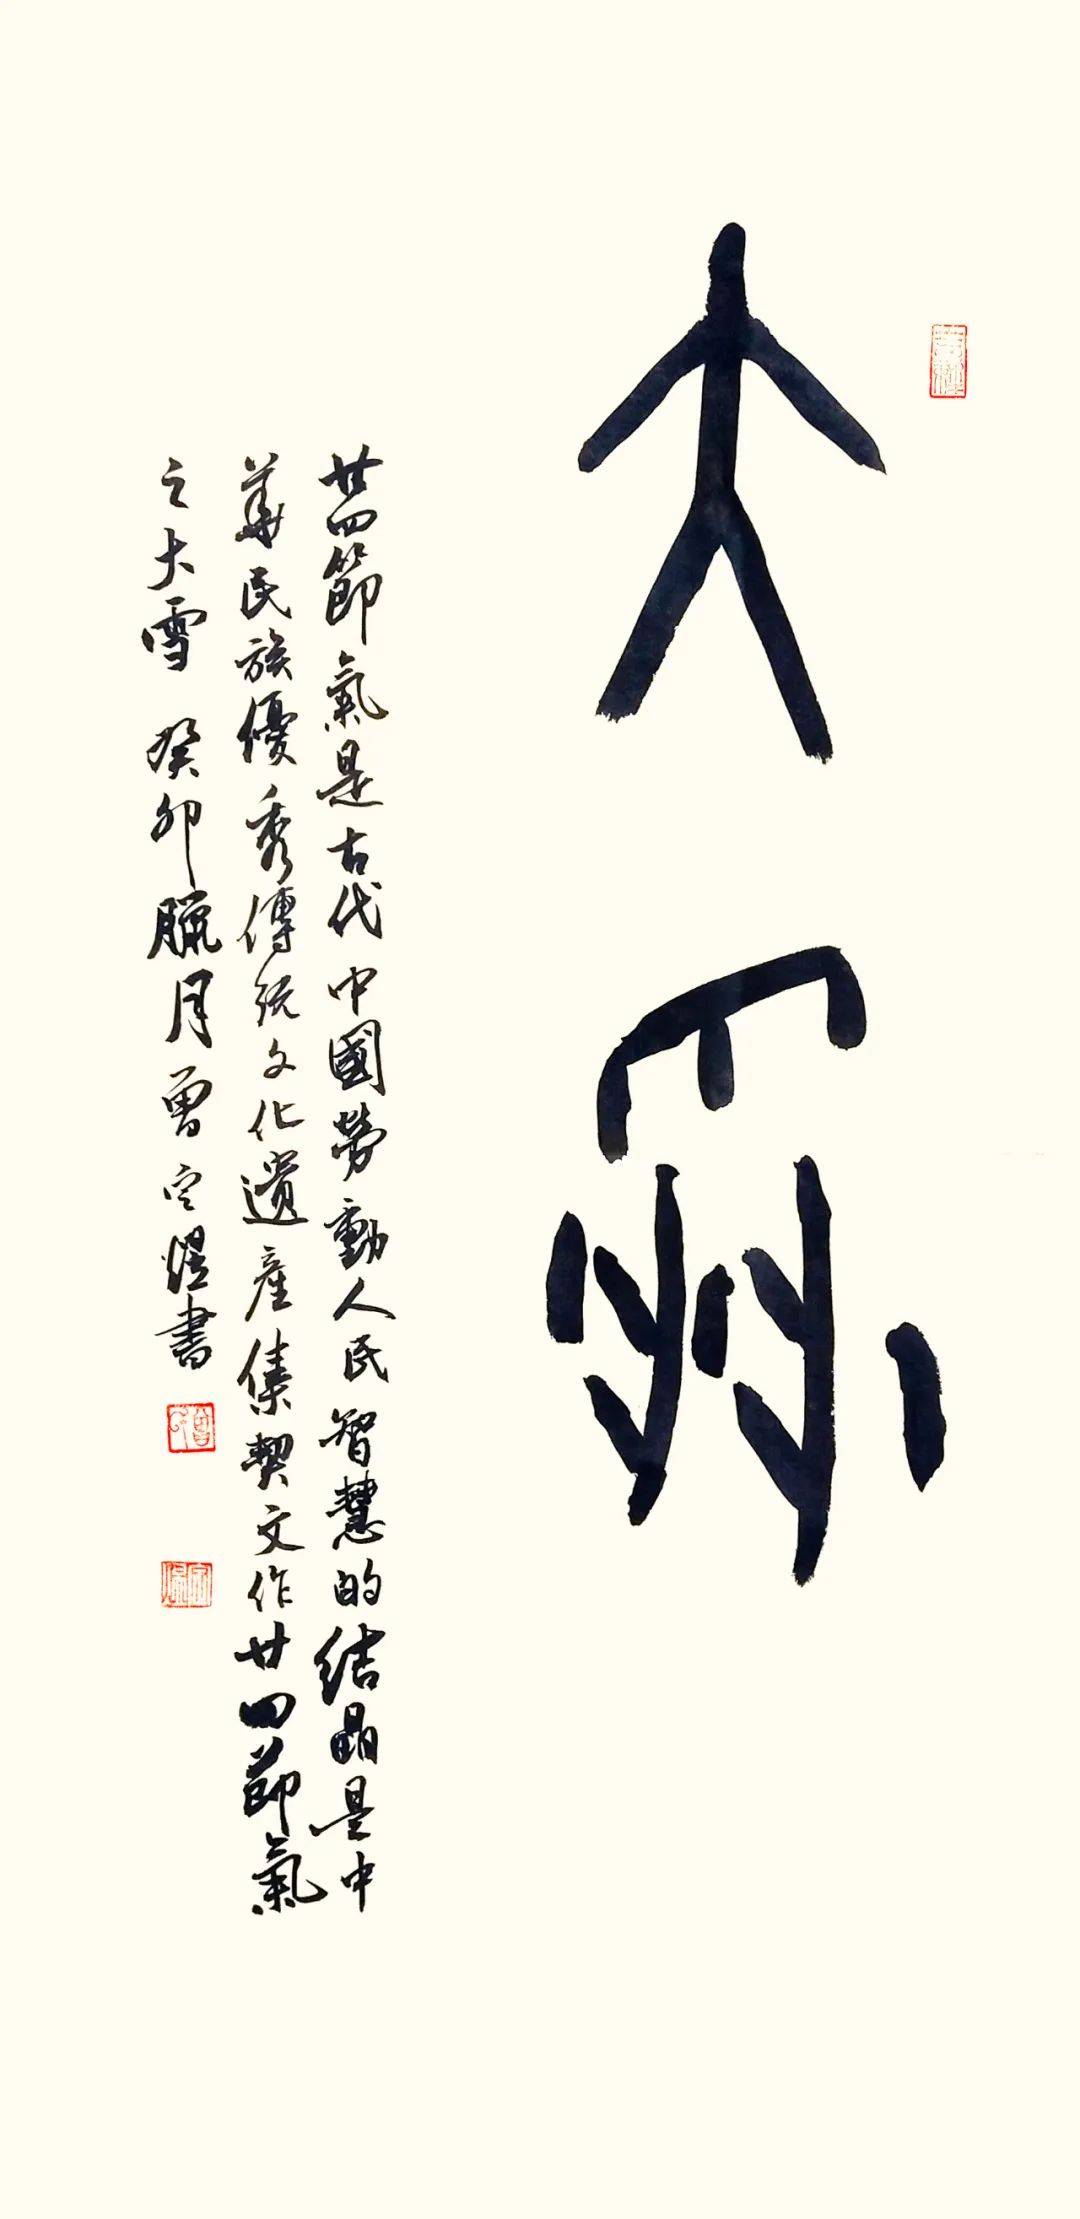 大雪
廿四節氣是古代中國勞動人民智慧的结晶是中
華民族優秀傳統文化遺產集契文作廿四節氣
之大雪 癸卯臘月曾宪煜書